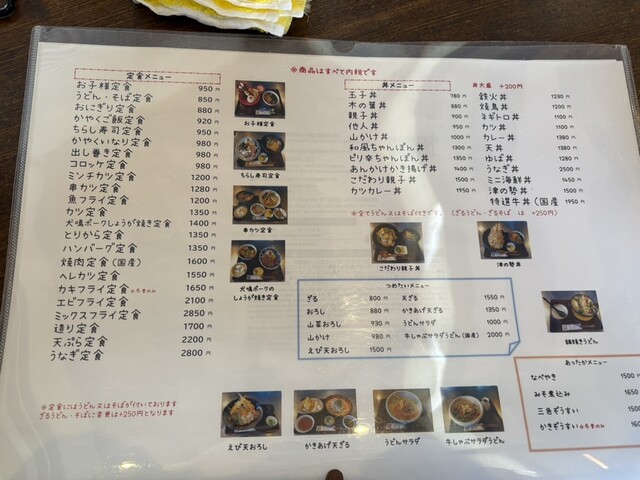 ※商品はすべて内税です
定食メニュー
お子様定食 950円
うどん・そば定食 850円
おにぎり定食 880円
かやくご飯定食 920円
ちらし寿司定食 950円
かやくいなり定食 980円
出し巻き定食 980円
コロッケ定食 980円
ミンチカツ定食 1200円
串カツ定食 1280円
魚フライ定食 1200円
カツ定食 1350円
犬鳴ポークしょうが焼き定食 1400円
とりから定食 1350円
ハンバーグ定食 1350円
焼肉定食(国産) 1600円
ヘレカツ定食 1550円
カキフライ定食 1650円
エビフライ定食 2100円
ミックスフライ定食 2850円
造り定食 1700円
天ぷら定食 2200円
うなぎ定食 2800円
※定食にはうどん又はそばが付いております
ざるうどん・そばに変更は+250円となります
お子様定食
ちらし寿司定食
串カツ定食
犬鳴ポークの
しょうが焼き定食
丼メニュー
丼大盛 +200円
玉子丼 780円
木の葉丼 880円
親子丼 900円
他人丼 950円
山かけ丼 1000円
和風ちゃんぽん丼 1300円
ピリ辛ちゃんぽん丼 1350円
あんかけかき揚げ丼 1450円
こだわり親子丼 1150円
カツカレー丼 1950円
鉄火丼 1230円
焼鳥丼 1100円
ネギトロ丼 1100円
カツ丼 1100円
カレー丼 1380円
天丼 1380円
ゆば丼 1280円
うなぎ丼 2500円
ミニ海鮮丼 1400円
津の勢丼 1100円
特選牛丼(国産 1950円
※全てうどん又はそば付きです。(ざるうどん・ざるそば は +250円)
こだわり親子丼
津の勢丼
つめたいメニュー
ざる 800円
おろし 880円
山菜おろし 930円
山かけ 980円
えび天おろし 1500円
天ざる 1550円
かきあげ天ざる 1350円
うどんサラダ 1000円
牛しゃぶサラダうどん(国産) 2000円
鍋焼きうどん
あったかメニュー
なべやき 1500円
みそ煮込み 1650
三色ぞうすい 1500
かきぞうすい 160
えび天おろし
かきあげ天ざる
うどんサラダ
牛しゃぶサラダうどん